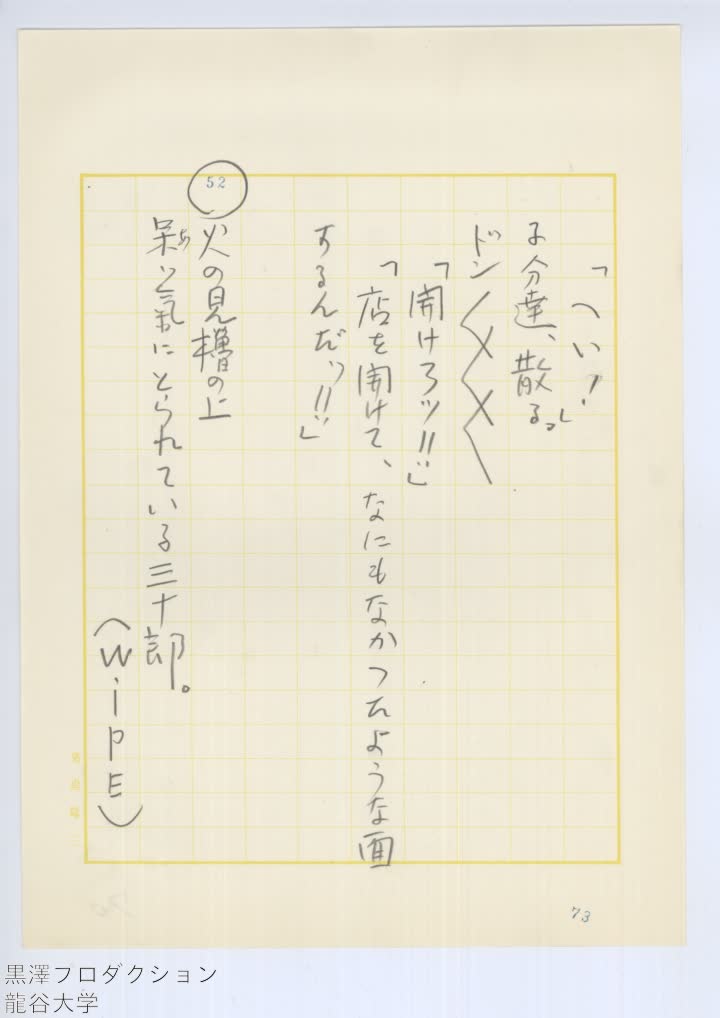 「へい！」
子分達、散る。
ドン〱〱
「開けろッ!!」
「店を開けて、なにもなかつたような面
するんだッ!!」
52
火の見櫓の上
呆ッ気にとられている三十郎。
あ
(WiPE)
73
黒澤プロダクション
龍谷大学